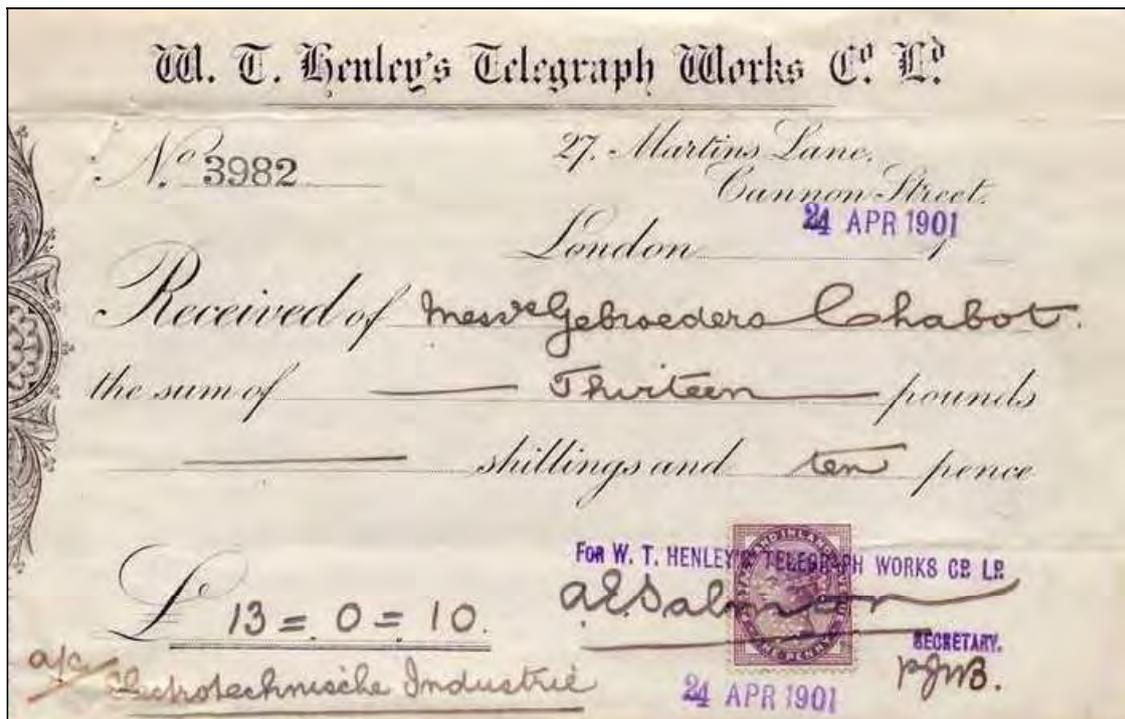 W. T. Henley's Telegraph Works Co. Ld.
No. 3982
27, Martins Lane,
Cannon Street,
24 APR 1901
London 1
Received of Messrs Gebroeders Chabot.
the sum of Thirteen pounds
shillings and ten pence
FOR W. T. HENLEY'S TELEGRAPH WORKS CO. LD.
£ 13 = 0 = 10.
SECRETARY.
a/c Electrotechnische Industrie
24 APR 1901